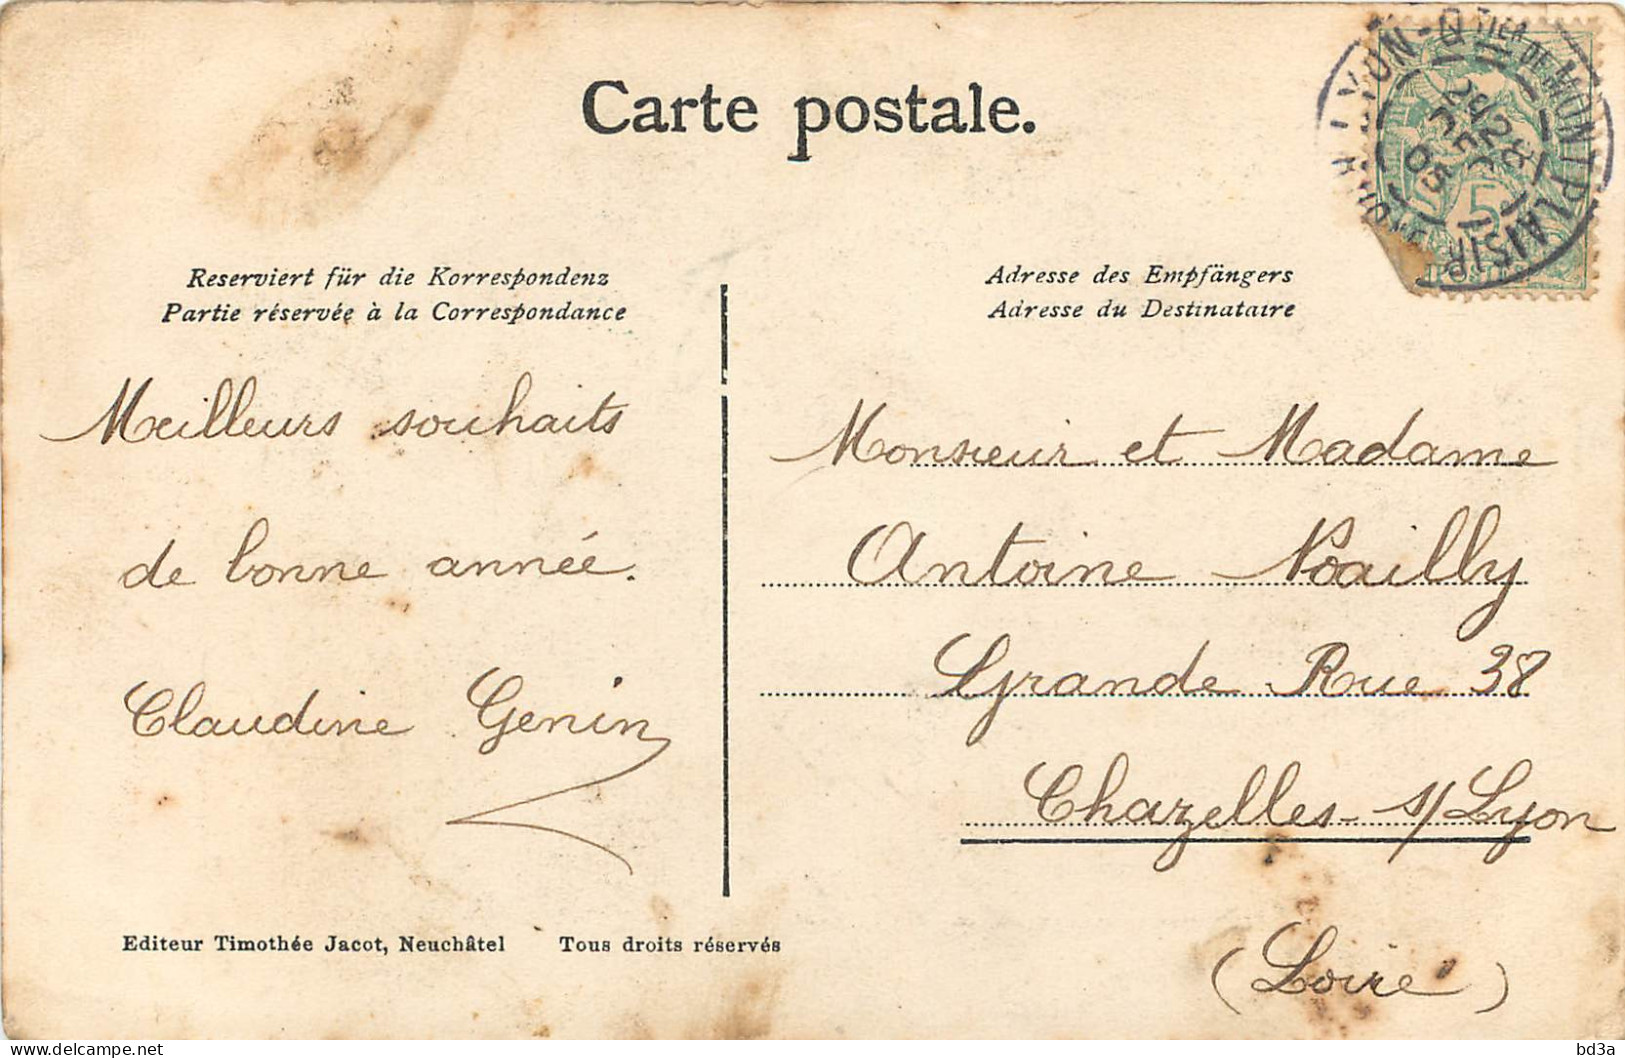 Carte postale.
LYON-QTIER DE MONTPLAISIR
28
DEC
05
5
Reserviert für die Korrespondenz
Partie réservée à la Correspondance
Adresse des Empfängers
Adresse du Destinataire
Meilleurs souhaits
de bonne année.
Claudine Genin
Monsieur et Madame
Antoine Noailly
Grande Rue 38
Chazelles-s/Lyon
(Loire)
Editeur Timothée Jacot, Neuchâtel Tous droits réservés
bd3a